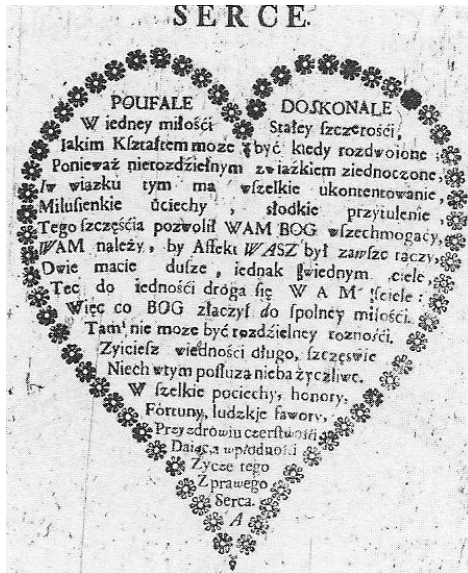 SERCE.
POUFALE DOSKONALE
W iedney miłośći Stałey szczerośći,
Jakim Kształtem może być kiedy rozdwoione ;
Ponieważ nierozdzielnym związkiem ziednoczone,
w wiazku tym ma wszelkie ukontentowanie,
Milusienkie uciechy , słodkie przytulenie ,
Tego szczęśćia pozwolił WAM BOG wszechmogący,
WAM należy, by Affekt WASZ był zawsze rączy,
Dwie macie dusze , iednak wiednym ciele,
Tec do iednośći dróga się WAM śćiele :
Więc co BOG złączył do spolney miłości.
Tam nie moze być rozdzielney roznośći.
Zyiciesz wiedności długo, szczęswie
Niech wtym posłuza nieba życzliwe.
W szelkie pociechy, honory,
Fortuny, ludzkje fawory,
Przy zdrowiu czerstwośći,
Daiąca wpłodnośći
Zycze tego
Z prawego
Serca.
A